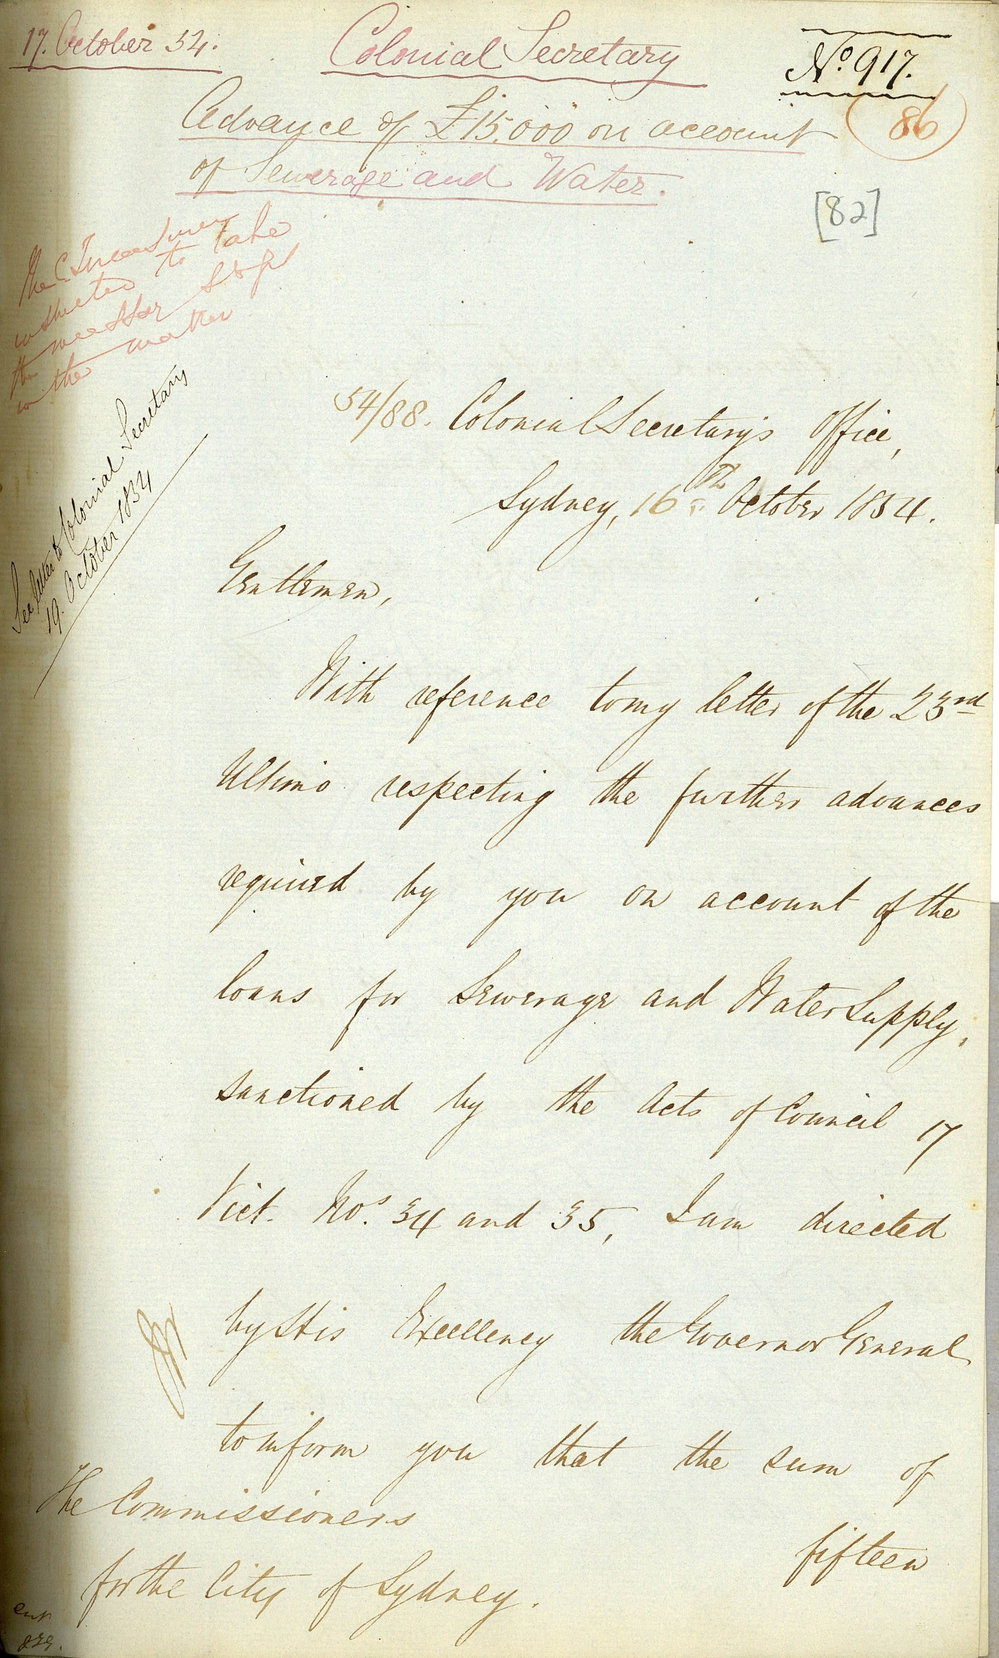 17. October 54.
Colonial Secretary
No. 917.
86
Advance of £15.000 on account
of Sewerage and Water.
[82]
The C. Treasurer
instructed to take
the necessary steps
in the matter
See letter to Colonial Secretary
19. October 1854
54/88. Colonial Secretary's Office,
Sydney, 16th October 1854.
Gentlemen,
With reference to my letter of the 23rd
Ultimo respecting the further advances
required by you on account of the
loans for Sewerage and Water Supply,
sanctioned by the Acts of Council 17
Vict. Nos. 34 and 35, I am directed
by His Excellency the Governor General
to inform you that the sum of
fifteen
The Commissioners
for the City of Sydney.